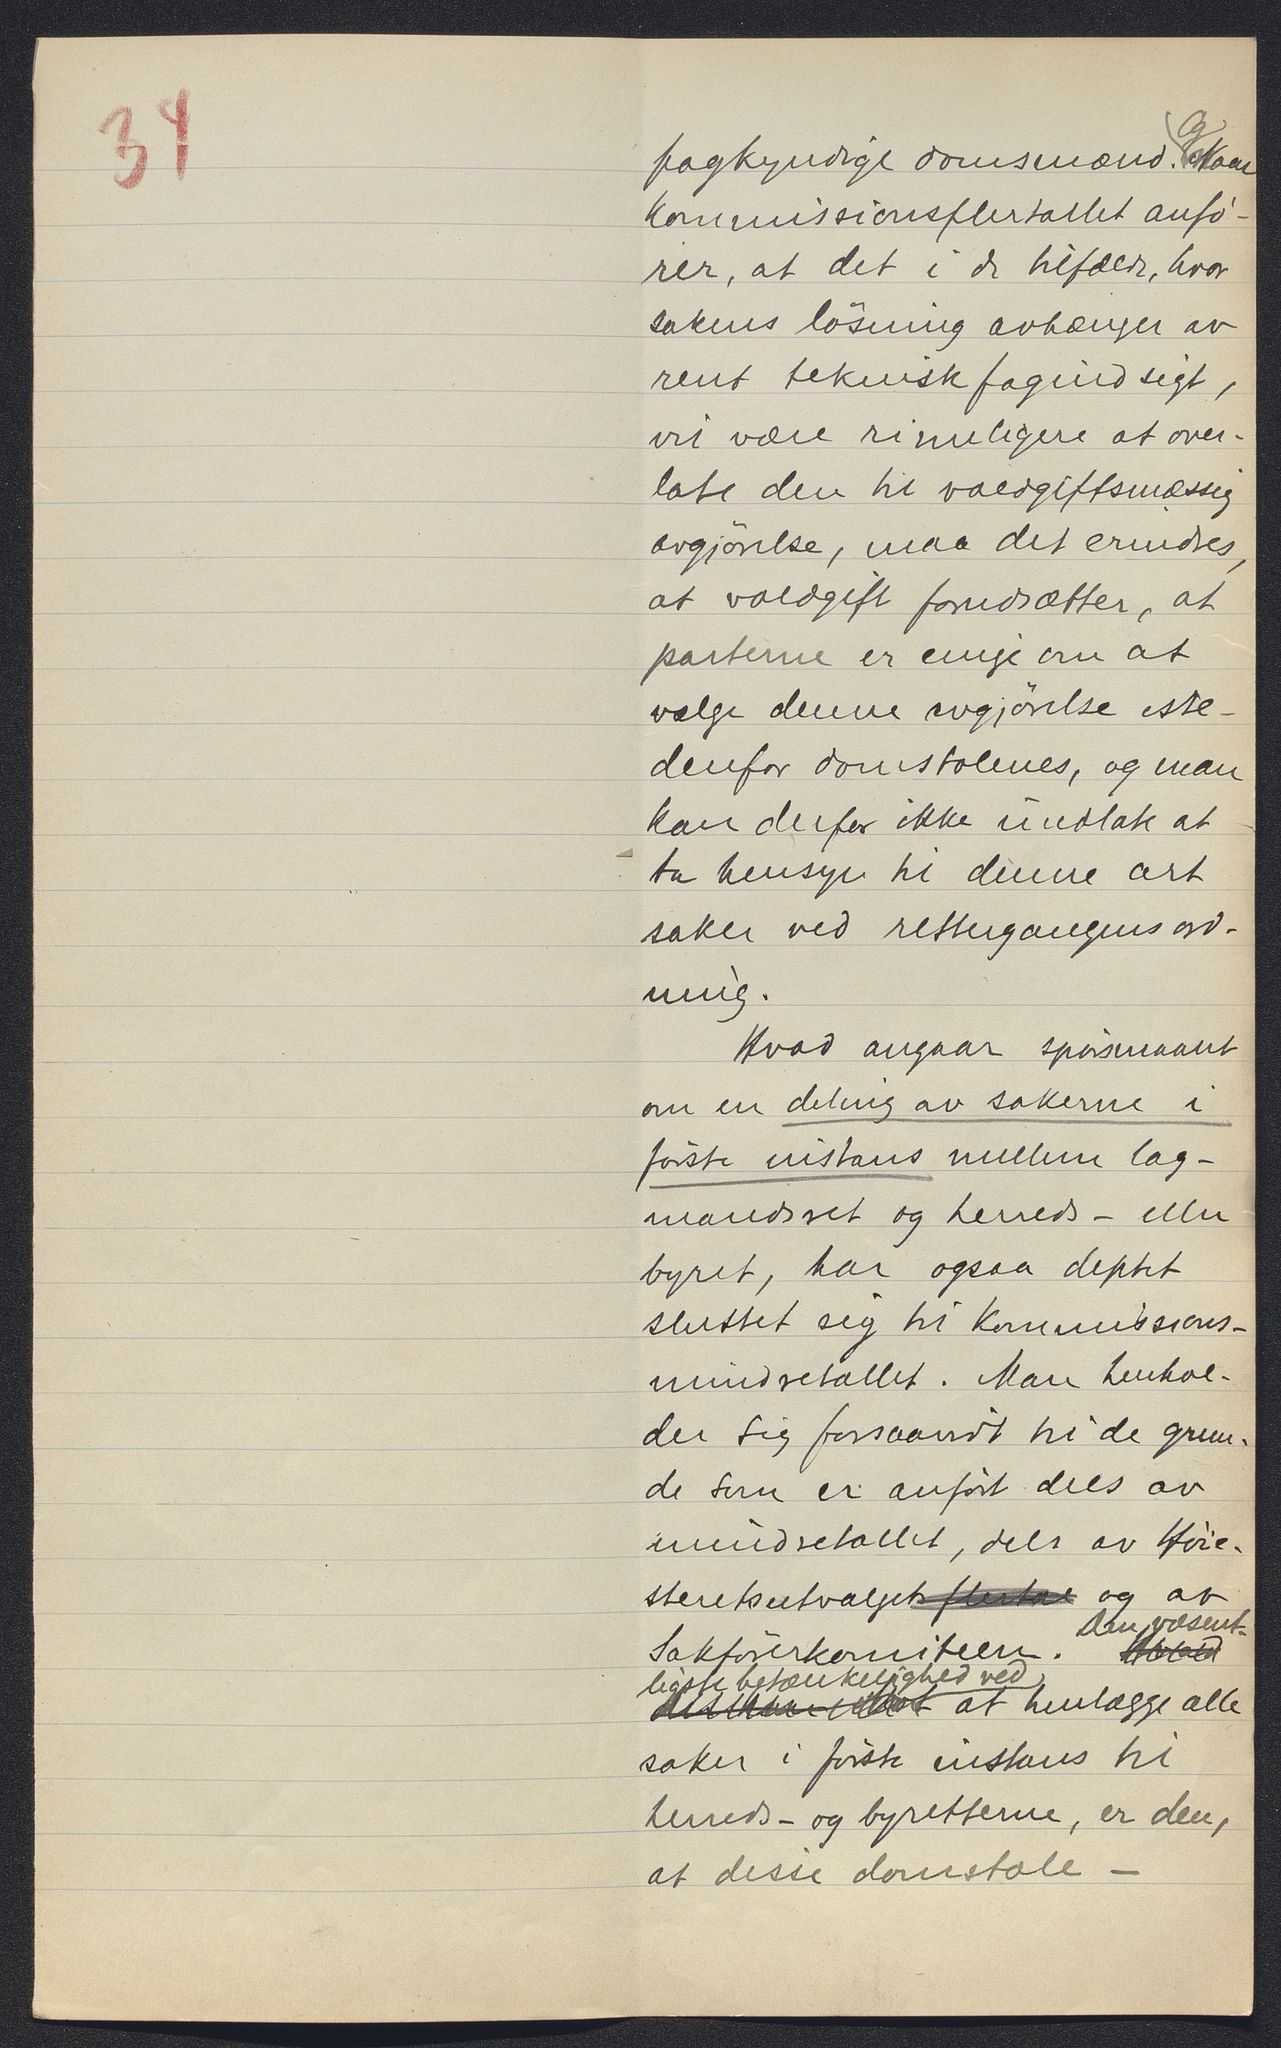 34
fagkyndige domsmænd. Naar
kommissionsflertallet anfö-
rer, at det i de tilfælde, hvor
sakens lösning avhænger av
rent teknisk fagindsigt,
vil være rimeligere at over-
late den til voldgiftsmæssig
avgjörelse, maa det erindres,
at voldgift forudsætter, at
parterne er enige om at
vælge denne avgjörelse iste-
denfor domstolenes, og man
kan derfor ikke undlate at
ta hensyn til denne art
saker ved rettergangens ord-
ning.
Hvad angaar spörsmaalet
om en deling av sakerne i
förste instans mellem lag-
mandsret og herreds- eller
byret, har ogsaa deptet
sluttet sig til kommissions-
mindretallet. Man henhol-
der sig forsaavidt til de grun-
de som er anfört dels av
mindretallet, dels av Höie-
steretsutvalgets flertal og av
Sakförerkomiteen. Den væsent-
ligste betænkelighed ved
at henlægge alle
saker i förste instans til
herreds- og byretterne, er den,
at disse domstole -